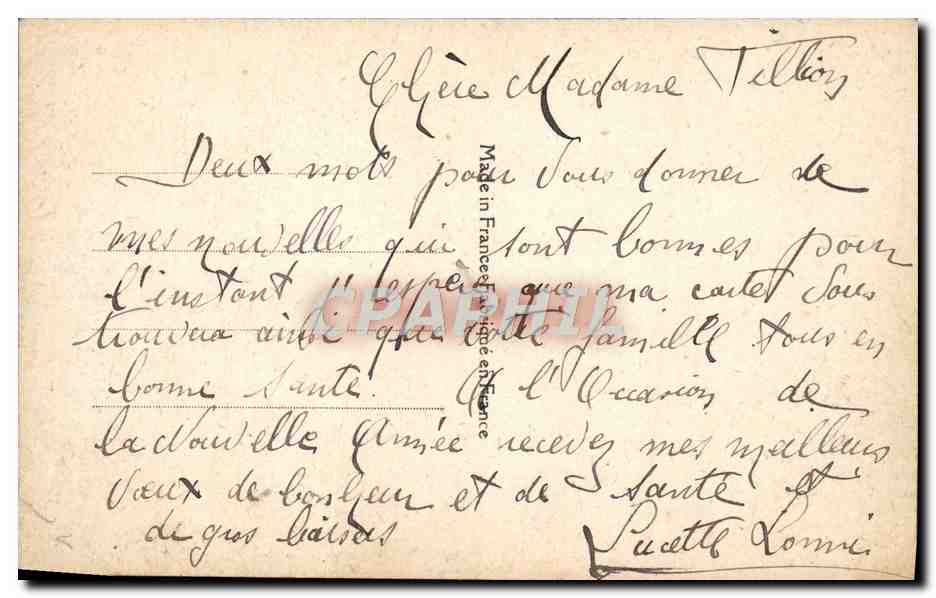 Chère Madame Tillion
Deux mots pour vous donner de
mes nouvelles qui sont bonnes pour
l'instant j'espère que ma carte vous
trouvera ainsi que votre famille tous en
bonne santé. A l'Occasion de
la Nouvelle Année recevez mes meilleurs
vœux de bonheur et de santé et
de gros baisers Lucette
Made in France Fabriqué en France
CPAPHIL